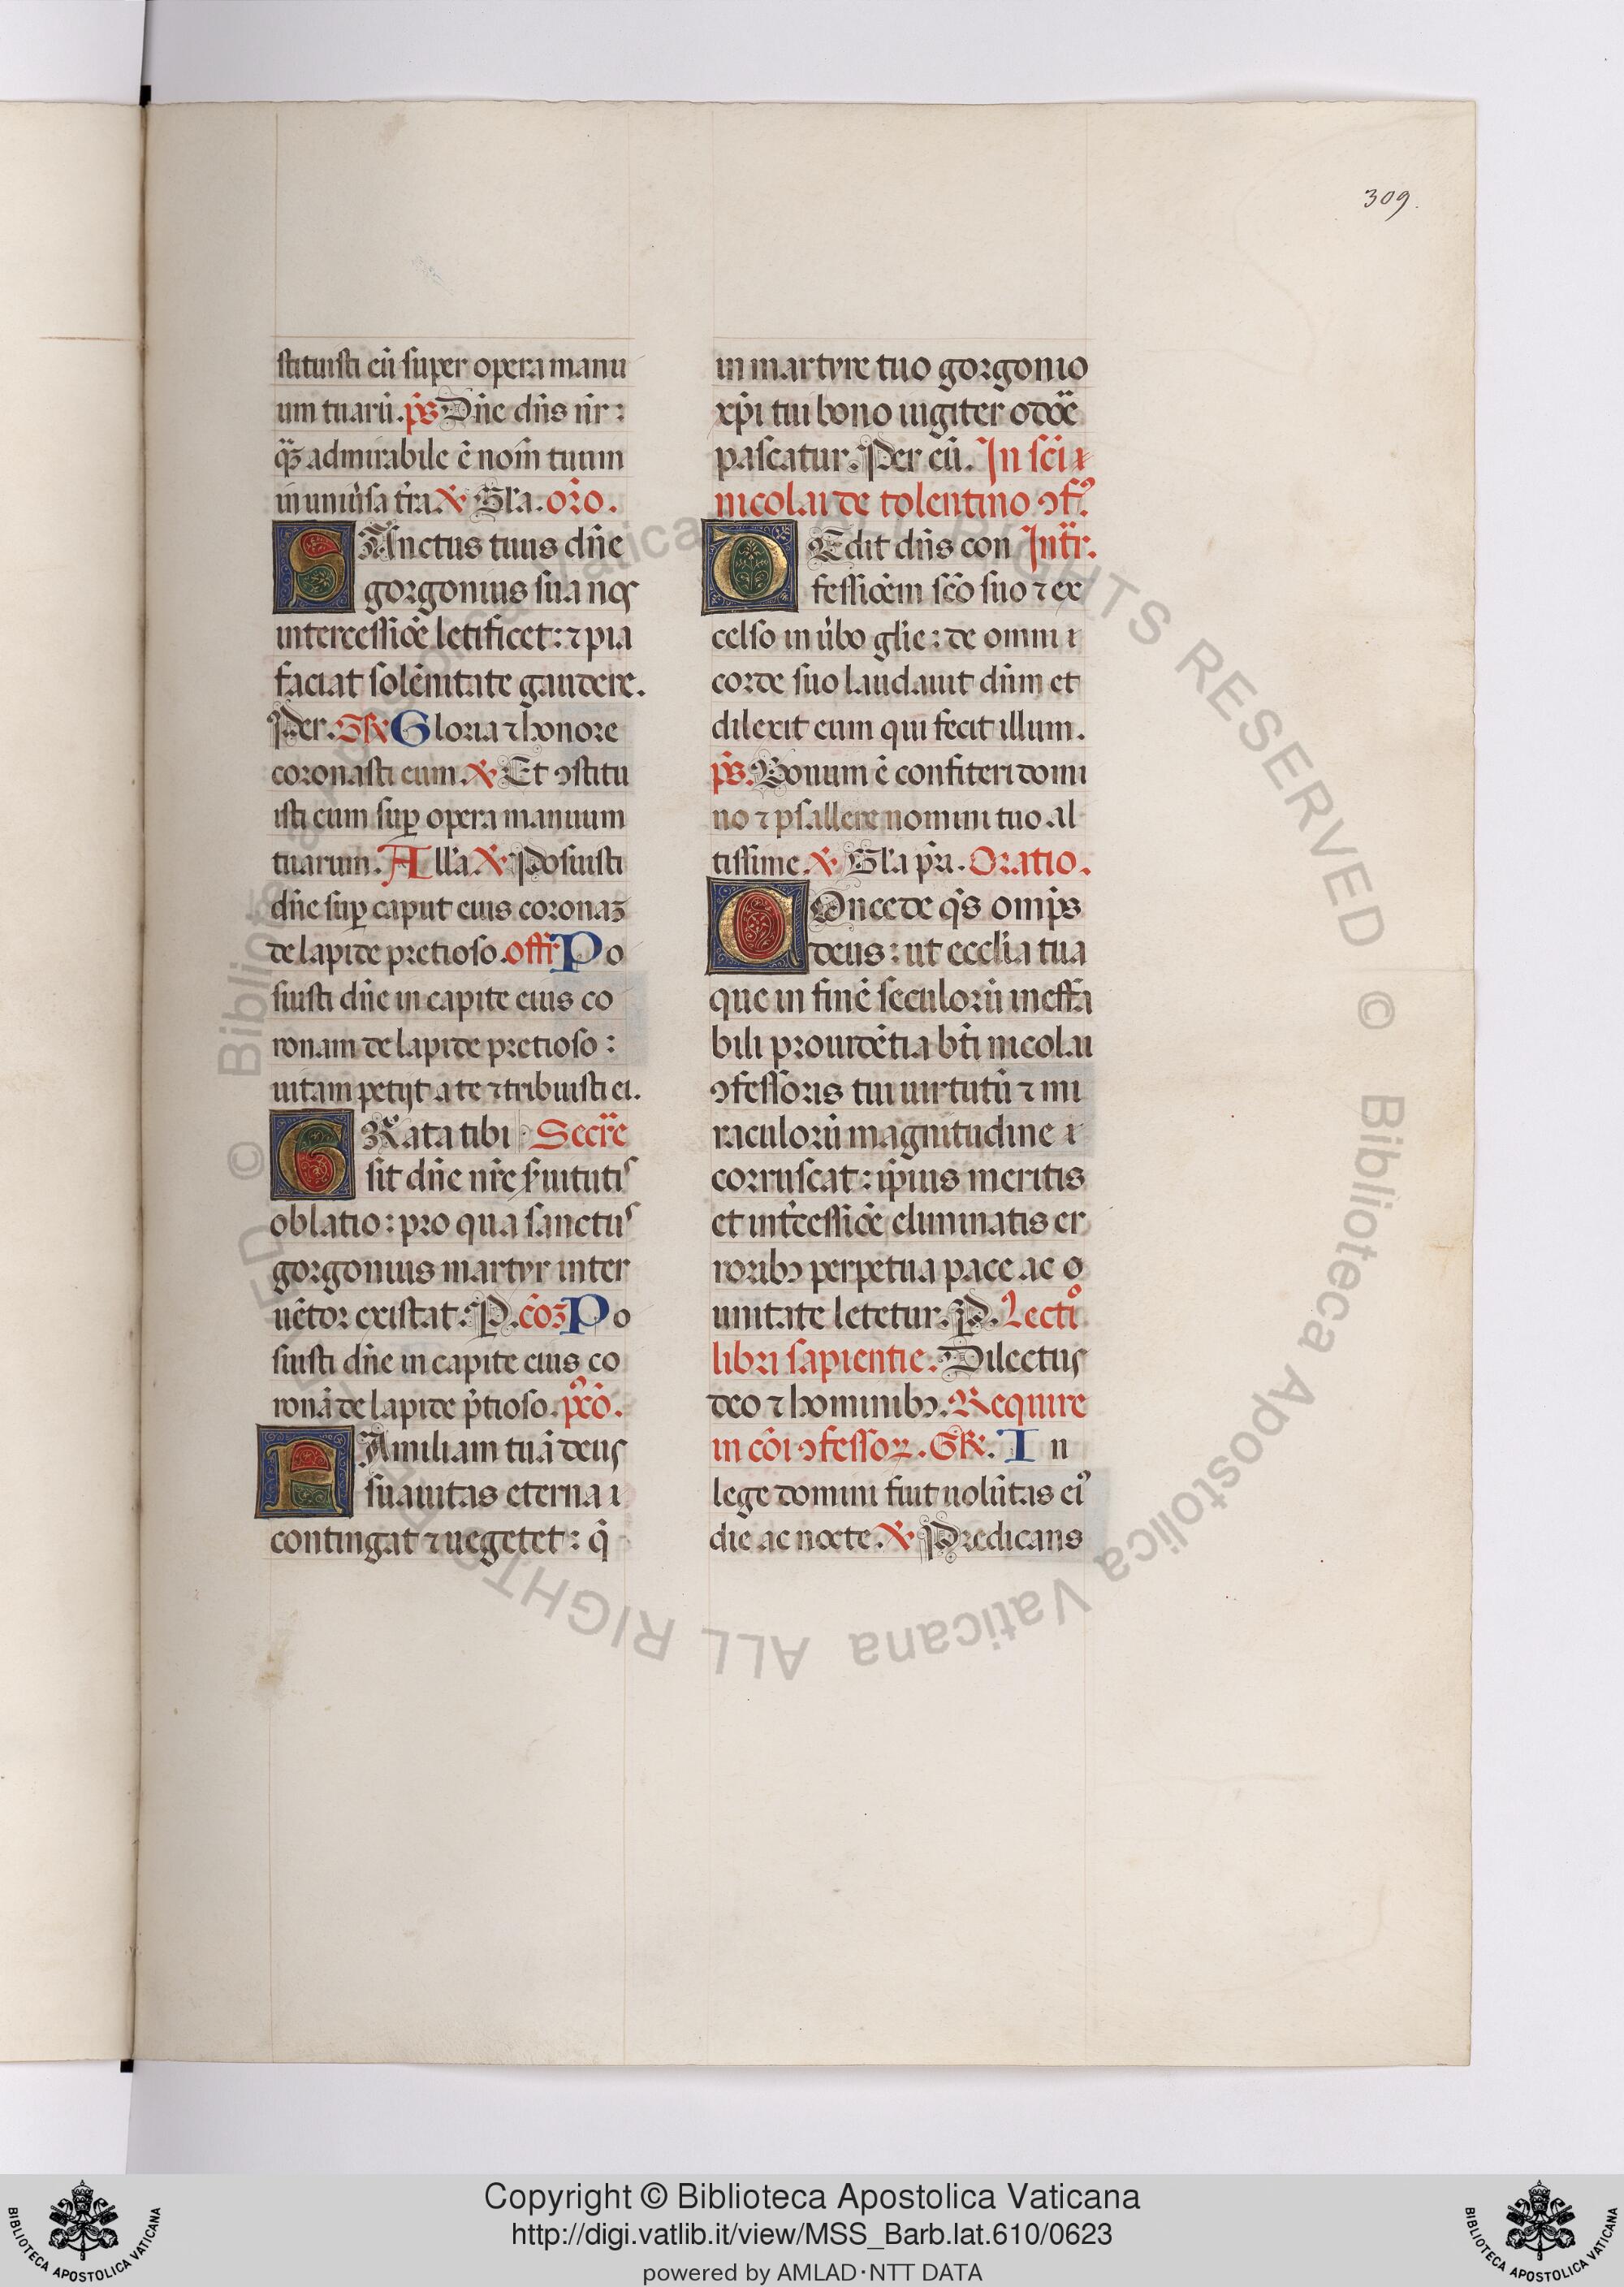 309.
stituisti eũ super opera manu
um tuarũ. p̃s Dñe dñs nr̃:
q̃ʒ admirabile ẽ nom̃ tuum
in uniũsa t̃ra. ℣ Gl'a. or̃o.
SAnctus tuus dñe
gorgonius sua nos
intercessiõe letificet: ⁊ pia
faciat solẽnitate gaudere.
Per. GR̃ Gloria ⁊ honore
coronasti eum. ℣ Et ꝯstitu
isti eum suꝑ opera manuum
tuarum. All'a. ℣ Posuisti
dñe suꝑ caput eius coronaʒ
de lapide pretioso. offr̃ Po
suisti dñe in capite eius co
ronam de lapide pretioso:
uitam petijt a te ⁊ tribuisti ei.
GRata tibi Secrẽ
sit dñe nr̃e ẜuitutis
oblatio: pro qua sanctus
gorgonius martyr inter
uẽtor existat. P. cõʒ Po
suisti dñe in capite eius co
ronã de lapide p̃tioso. p̃cõ.
FAmiliam tuã deus
suauitas eterna
contingat ⁊ uegetet: q̃
in martyre tuo gorgonio
xp̃i tui bono iugiter odoẽ
pascatur. Per eũ. In sc̃i
nicolai de tolentino ꝯf.
DEdit dñs con Intr̃.
fessiõem sc̃o suo ⁊ ex
celso in ũbo gl'ie: de omni
corde suo laudauit dñm et
dilexit eum qui fecit illum.
p̃s. Bonum ẽ confiteri domi
no ⁊ psallere nomini tuo al
tissime. ℣ Gl'a pr̃i. Oratio.
COncede q̃s omp̃s
deus: ut eccl'ia tua
que in finẽ seculorũ ineffa
bili prouidẽtia bt̃i nicolai
ꝯfessoris tui uirtutũ ⁊ mi
raculorũ magnitudine
corruscat: ip̃ius meritis
et int̃cessiõe eliminatis er
roribꝯ perpetua pace ac
unitate letetur. P. Lectio
libri sapientie. Dilectus
deo ⁊ hominibꝯ. Require
in cõi ꝯfessoꝝ. GR̃. In
lege domini fuit uolũtas ei᷒
die ac nocte. ℣ Predicans
Copyright © Biblioteca Apostolica Vaticana
http://digi.vatlib.it/view/MSS_Barb.lat.610/0623
powered by AMLAD·NTT DATA
BIBLIOTECA APOSTOLICA VATICANA
BIBLIOTECA APOSTOLICA VATICANA
© Biblioteca Apostolica Vaticana ALL RIGHTS RESERVED © Biblioteca Apostolica Vaticana ALL RIGHTS RESERVED